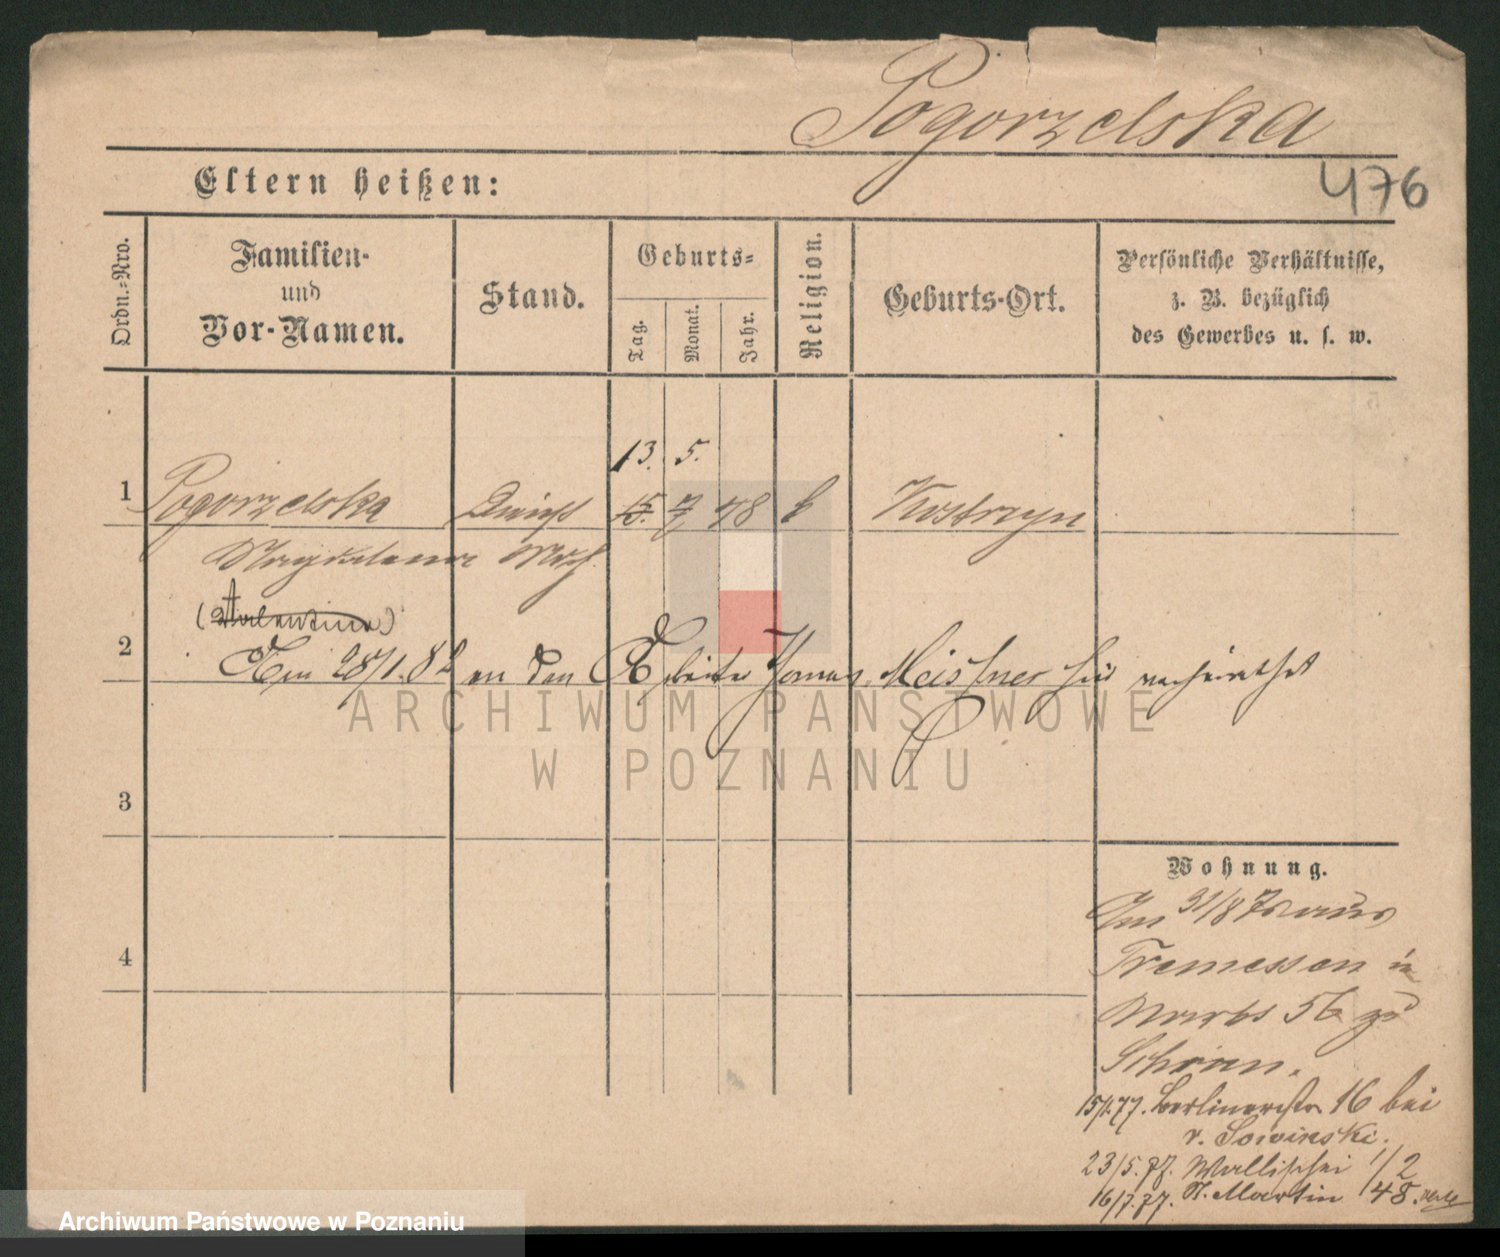 Pogorzelska
476
Eltern heißen:
Ordn.-Nro.
Familien-
und
Vor-Namen.
Stand.
Geburts-
Tag.
Monat.
Jahr.
Religion.
Geburts-Ort.
Persönliche Verhältnisse,
z. B. bezüglich
des Gewerbes u. s. w.
13. 5.
1 Pogorzelska 15. 7 48 k Kostrzyn
Magdalena
(Valentina)
2 Am 28/1. 82 an den Arbeiter Thomas Meissner hier verheirathet
3
4
Wohnung.
Am 31/8 aus
Tremessen in
56 zu
15/1.77. Berlinerstr. 16 bei
v. Sowinski.
23/5.77. Wallischei 1/2
16/7.77. St. Martin 48.
ARCHIWUM PAŃSTWOWE
W POZNANIU
Archiwum Państwowe w Poznaniu